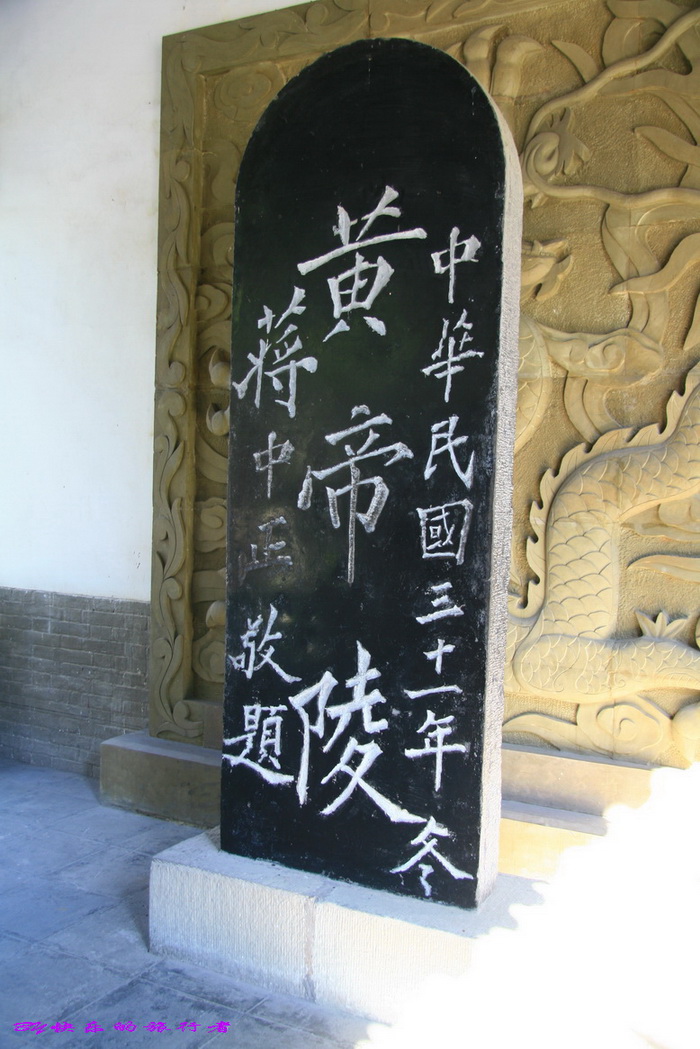 中華民國三十一年冬
黄帝陵
蔣中正敬題
By快乐的旅行者